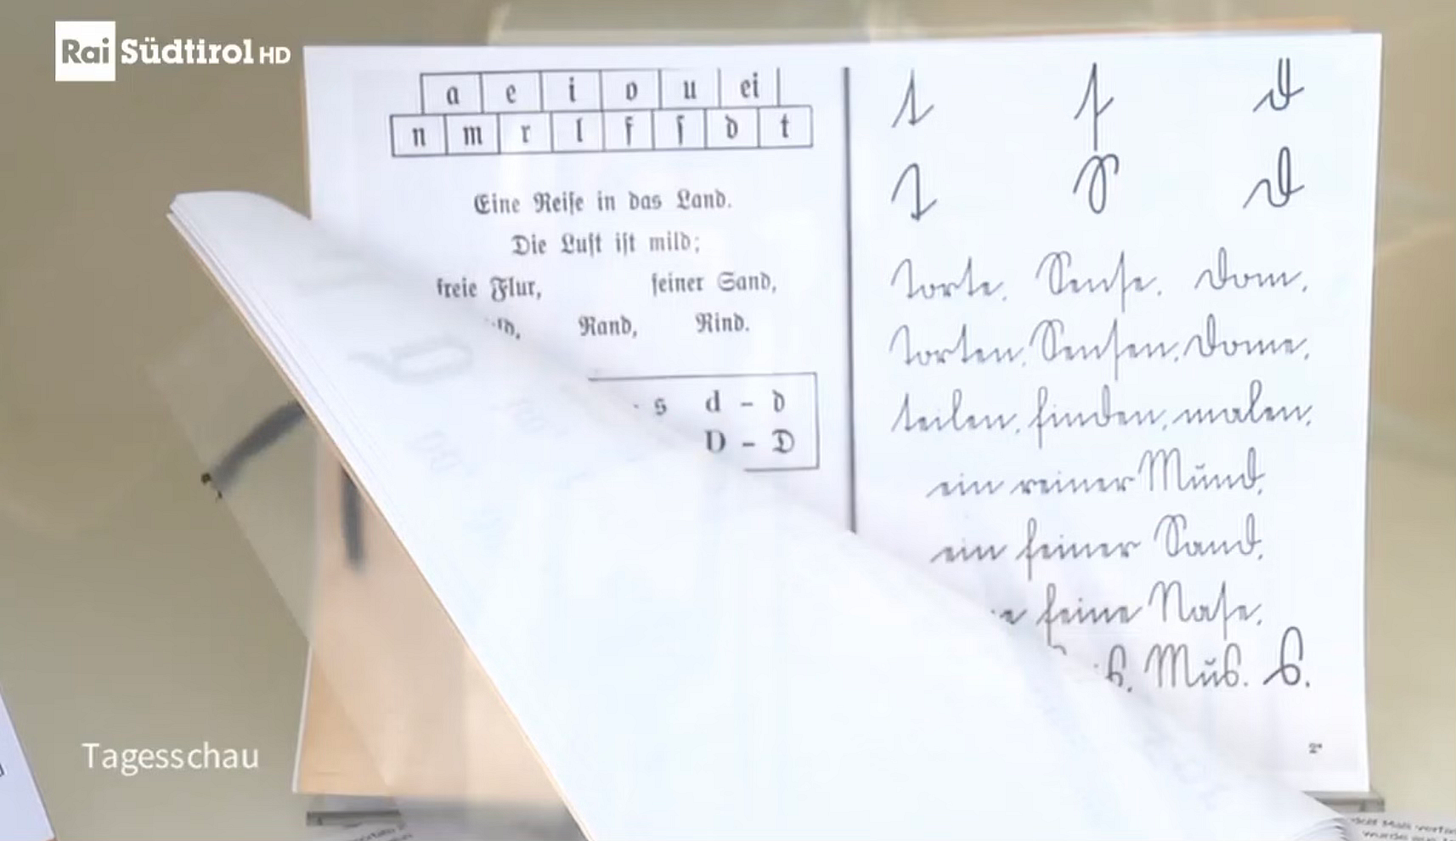 Rai Südtirol HD
a e i o u ei
n m r l f ſ d t
Eine Reiſe in das Land.
Die Luft iſt mild;
freie Flur, feiner Sand,
Rand, Rind.
s d - d
D - D
t ſ d
T S D
Torte. Senſe. Dom.
Torten. Senſen. Dome.
teilen. finden. malen.
ein reiner Mund.
ein feiner Sand.
feine Naſe.
Muß. ß.
Tagesschau